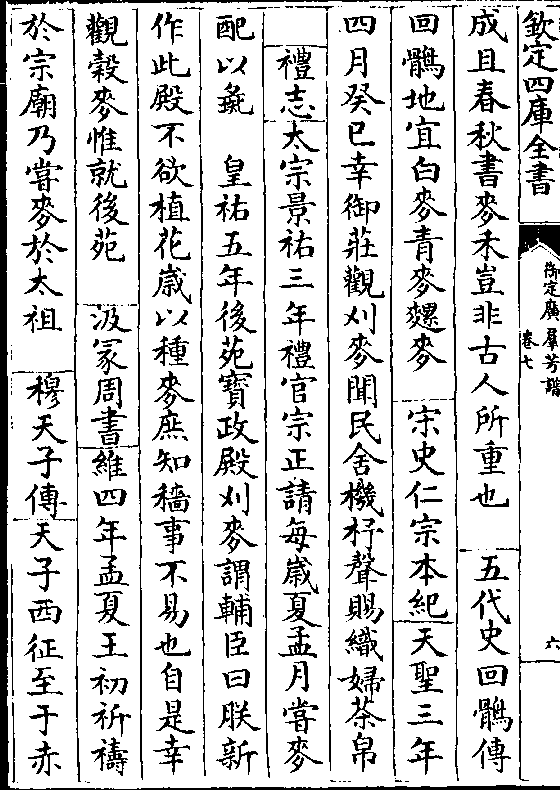 欽定四庫全書
御定廣羣芳譜
卷七
六
成且春秋書麥禾豈非古人所重也 五代史回鶻傳
回鶻地宜白麥青麥䴹麥 宋史仁宗本紀天聖三年
四月癸巳幸御莊觀刈麥聞民舍機杼聲賜織婦茶帛
禮志太宗景祐三年禮官宗正請每歲夏孟月嘗麥
配以彘 皇祐五年後苑寶政殿刈麥謂輔臣曰朕新
作此殿不欲植花歲以種麥庶知穡事不易也自是幸
觀穀麥惟就後苑 汲冢周書維四年孟夏王初祈禱
於宗廟乃嘗麥於太祖 穆天子傳天子西征至于赤